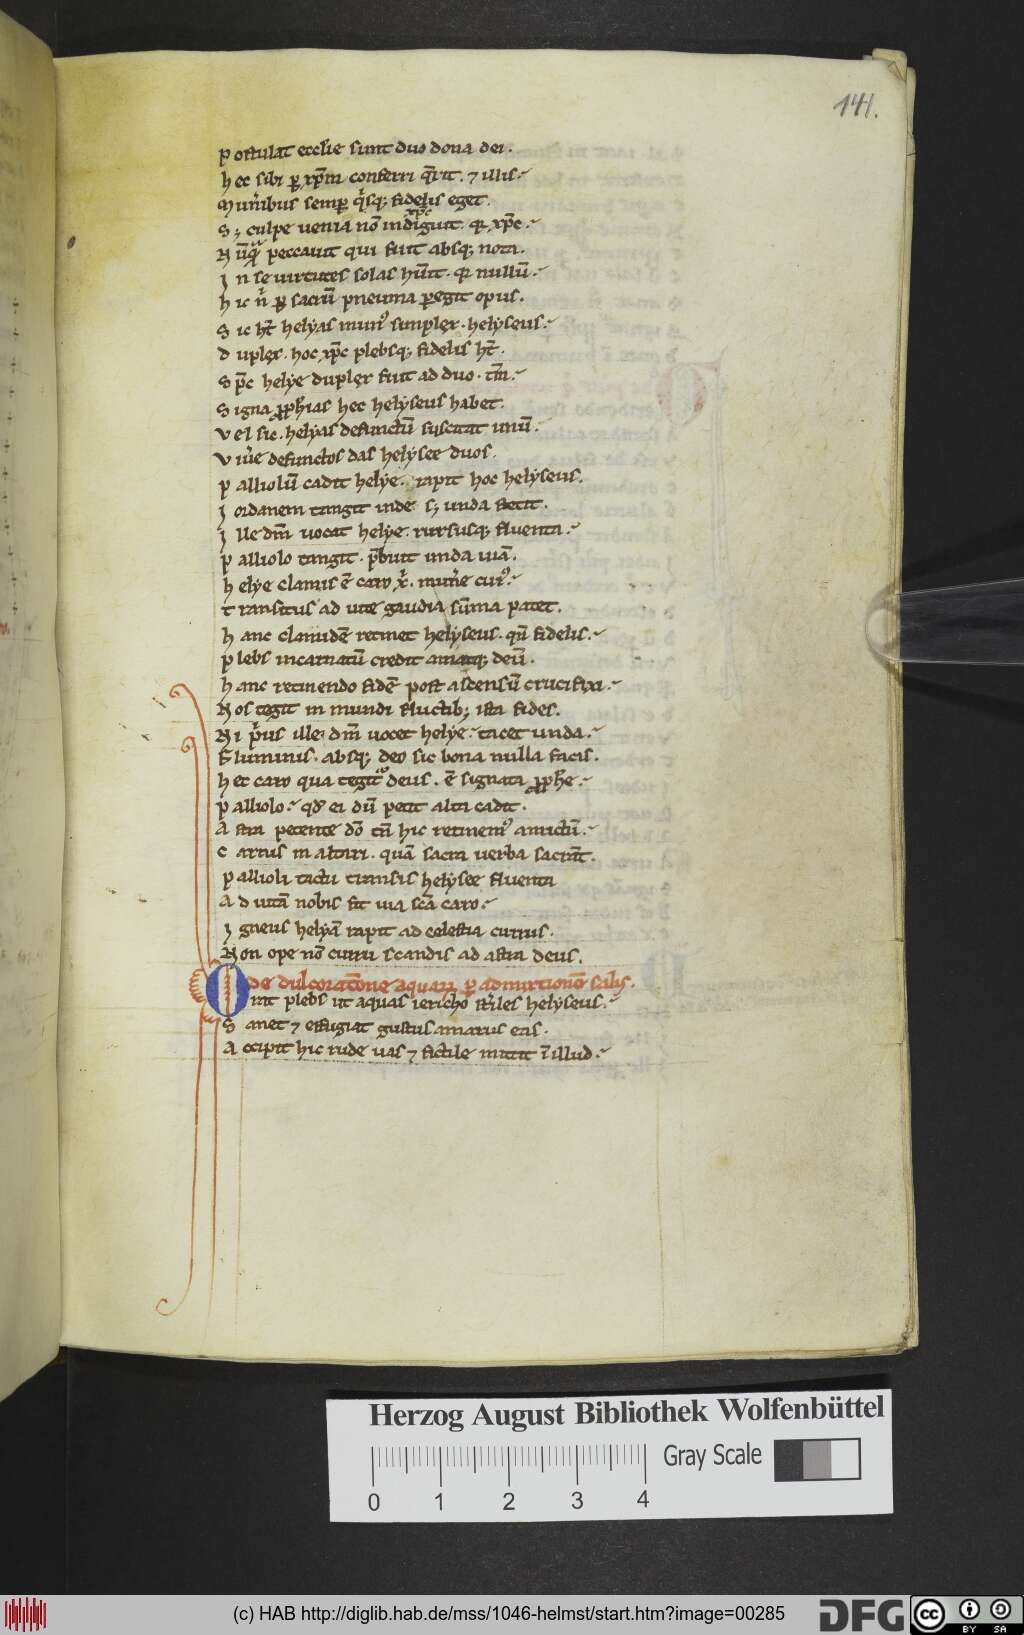 141.
postulat ecclie sunt duo dona dei.
hec sibi p xpm conferri qrit. ⁊ illis.
Munibus semp qsq; fidelis eget.
xpc
S; culpe venia nō indiguit. qr xpc.
Nūqa peccauit qui fuit absq; nota.
In se uirtutes solas hūit. qr nullū.
hic n p sacrū pneuma pegit opus.
Sic ht helyas mun simplex. helyseus.
duplex. hoc xpc plebsq; fidelis ht.
Spc helye duplex fuit ad duo. tm.
Signa pphias hec helyseus habet.
vel sic. helyas defunctū suscitat unū.
viūe defunctos das helysee duos.
palliolū cadit helye. rapit hoc helyseus.
Iordanem tangit inde s; unda stetit.
Ille dm uocat helye. rursusq; fluenta.
palliolo tangit. pbuit unda uiā.
helye clamis ē caro xi. mune cui.
transitus ad uite gaudia sūma patet.
hanc clamidē retinet helyseus. qn fidelis.
plebs incarnatū credit amatq; deū.
hanc retinendo fidē post ascensū crucifixi.
Nos tegit in mundi fluctib; ista fides.
Ni prius ille dm uocet helye. tacet unda.
Fluminis. absq; deo sic bona nulla facis.
hec caro qua tegitur deus. ē signata pphe.
palliolo. qd ei dū petit alta cadit.
Astra petente dō cū hic retinem amictū.
Cartus in altari. quā sacra uerba sacrāt.
pallioli tactu transis helysee fluenta
Ad uitā nobis fit uia scā caro.
Igneus helyā rapit ad celestia currus.
Non ope nō curru scandis ad astra deus.
de dulcoratione aquarū p admixtionē salis.
Orat plebs ut aquas iericho steriles helyseus.
Sanet ⁊ effugiat gustus amarus eas.
Accipit hic rude uas ⁊ fictile mittit ī illud.
Herzog August Bibliothek Wolfenbüttel
Gray Scale
0 1 2 3 4
(c) HAB http://diglib.hab.de/mss/1046-helmst/start.htm?image=00285
DFG
cc BY SA